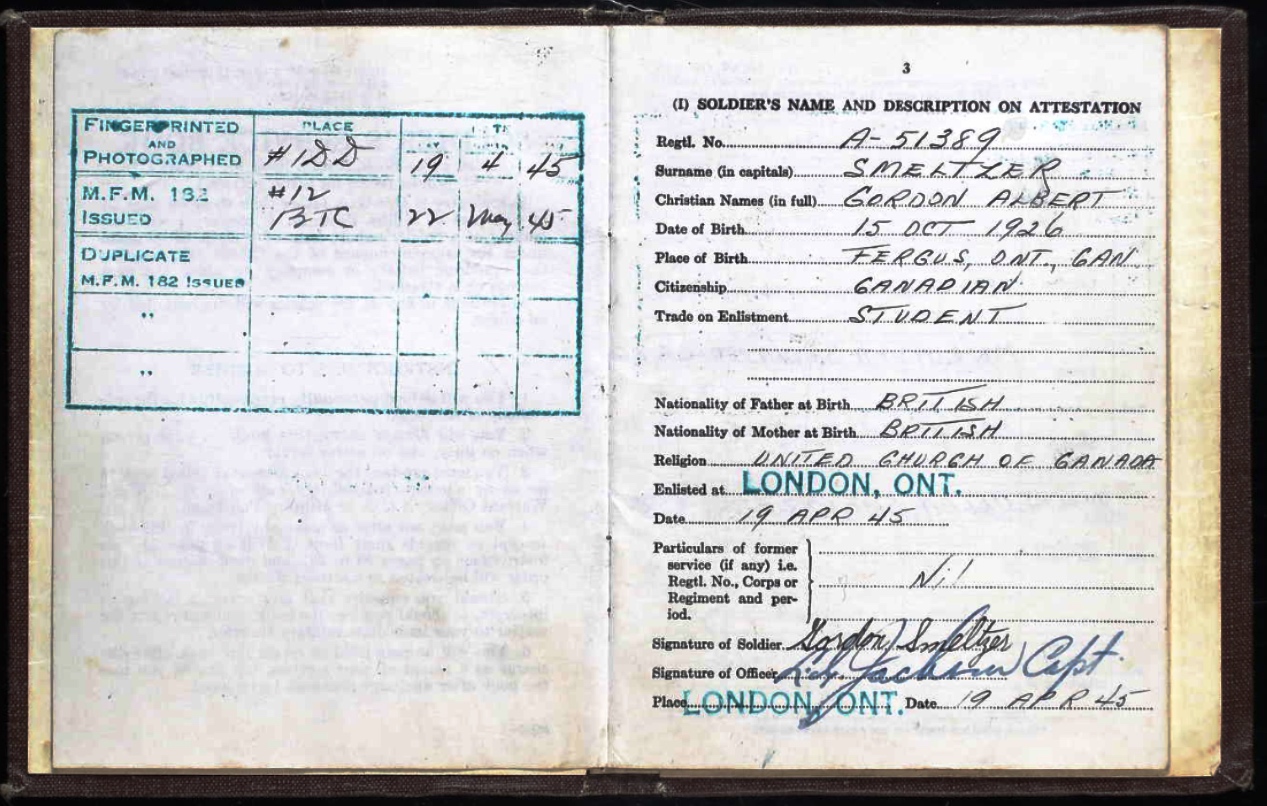 FINGERPRINTED AND PHOTOGRAPHED
PLACE
DAY MONTH
#1DD 19 4 45
M.F.M. 182 ISSUED
#12 BTC 22 May 45
DUPLICATE
M.F.M. 182 ISSUED
"
"
3
(I) SOLDIER'S NAME AND DESCRIPTION ON ATTESTATION
Regtl. No. A-51389
Surname (in capitals) SMELTZER
Christian Names (in full) GORDON ALBERT
Date of Birth 15 OCT 1926
Place of Birth FERGUS, ONT., CAN.
Citizenship CANADIAN
Trade on Enlistment STUDENT
Nationality of Father at Birth BRITISH
Nationality of Mother at Birth BRITISH
Religion UNITED CHURCH OF CANADA
Enlisted at LONDON, ONT.
Date 19 APR 45
Particulars of former
service (if any) i.e.
Regtl. No., Corps or
Regiment and per-
iod.
Nil
Signature of Soldier Gordon Smeltzer
Signature of Officer Jackson Capt.
Place LONDON, ONT. Date 19 APR 45